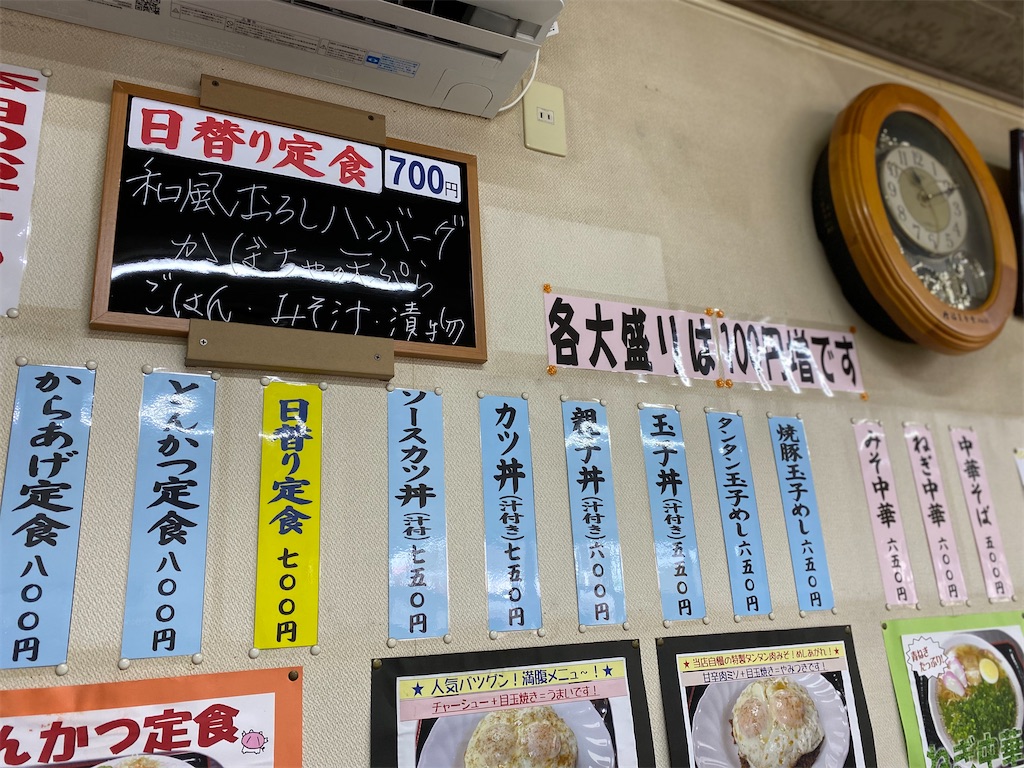 日替り定食
700円
和風おろしハンバーグ
かぼちゃの天ぷら
ごはん・みそ汁・漬物
各大盛りは100円増です
からあげ定食 八〇〇円
とんかつ定食 八〇〇円
日替り定食 七〇〇円
ソースカツ丼(汁付) 七五〇円
カツ丼(汁付き) 七五〇円
親子丼(汁付き) 六〇〇円
玉子丼(汁付き) 五五〇円
タンタン玉子めし 六五〇円
焼豚玉子めし 六五〇円
みそ中華 六五〇円
ねぎ中華 六〇〇円
中華そば 五〇〇円
んかつ定食
★人気バツグン!満腹メニュ〜!★
チャーシュー+目玉焼き=うまいです!
★当店自慢の特製タンタン肉みそ!めしあがれ!★
甘辛肉ミソ+目玉焼き=やみつきです!
青ねぎ
たっぷり!
ねぎ中華